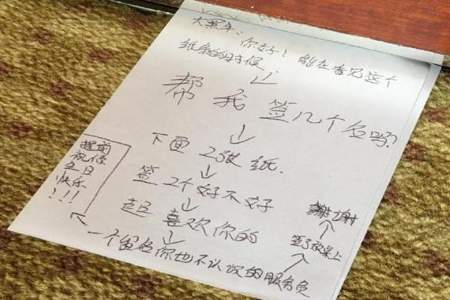 你好！能在看见这个
纸条的时候
帮我签几个名吗?
下面 2张纸.
签2个好不好
喜欢你的
一个留给你也不认识的服务员
签了放桌上
谢谢
提前
祝你
生日
快乐
!!!